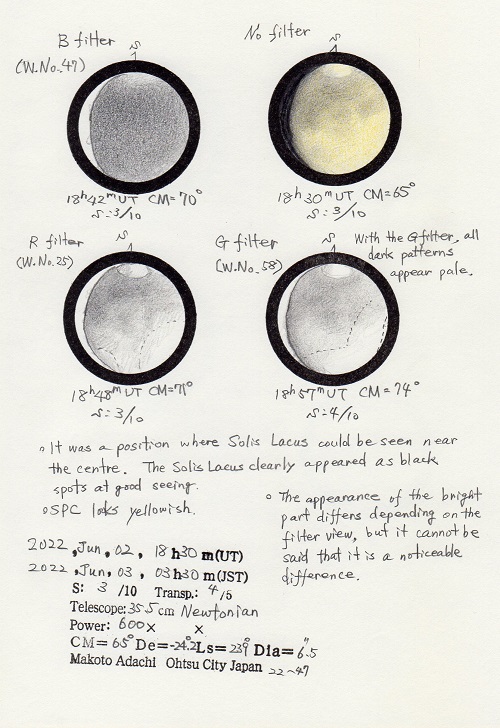 B filter
(W.No.47)
S
18h42mUT CM=70°
S:3/10
No filter
S
18h30mUT CM=65°
S:3/10
R filter
(W.No.25)
S
18h48mUT CM=71°
S:3/10
G filter
(W.No.58)
S
18h57mUT CM=74°
S:4/10
With the Gfilter, all
dark patterns
appear pale.
○ It was a position where Solis Lacus could be seen near
the centre. The Solis Lacus clearly appeared as black
spots at good seeing.
○ SPC looks yellowish.
○ The appearance of the bright
part differs depending on the
filter view, but it cannot be
said that it is a noticeable
difference.
2022, Jun, 02, 18h30m(UT)
2022, Jun, 03, 03h30m(JST)
S: 3 /10 Transp.: 4/5
Telescope: 35.5cm Newtonian
Power: 600× ×
CM= 65° De=-24.2° Ls= 239° Dia= 6.5"
Makoto Adachi Ohtsu City Japan 22-47